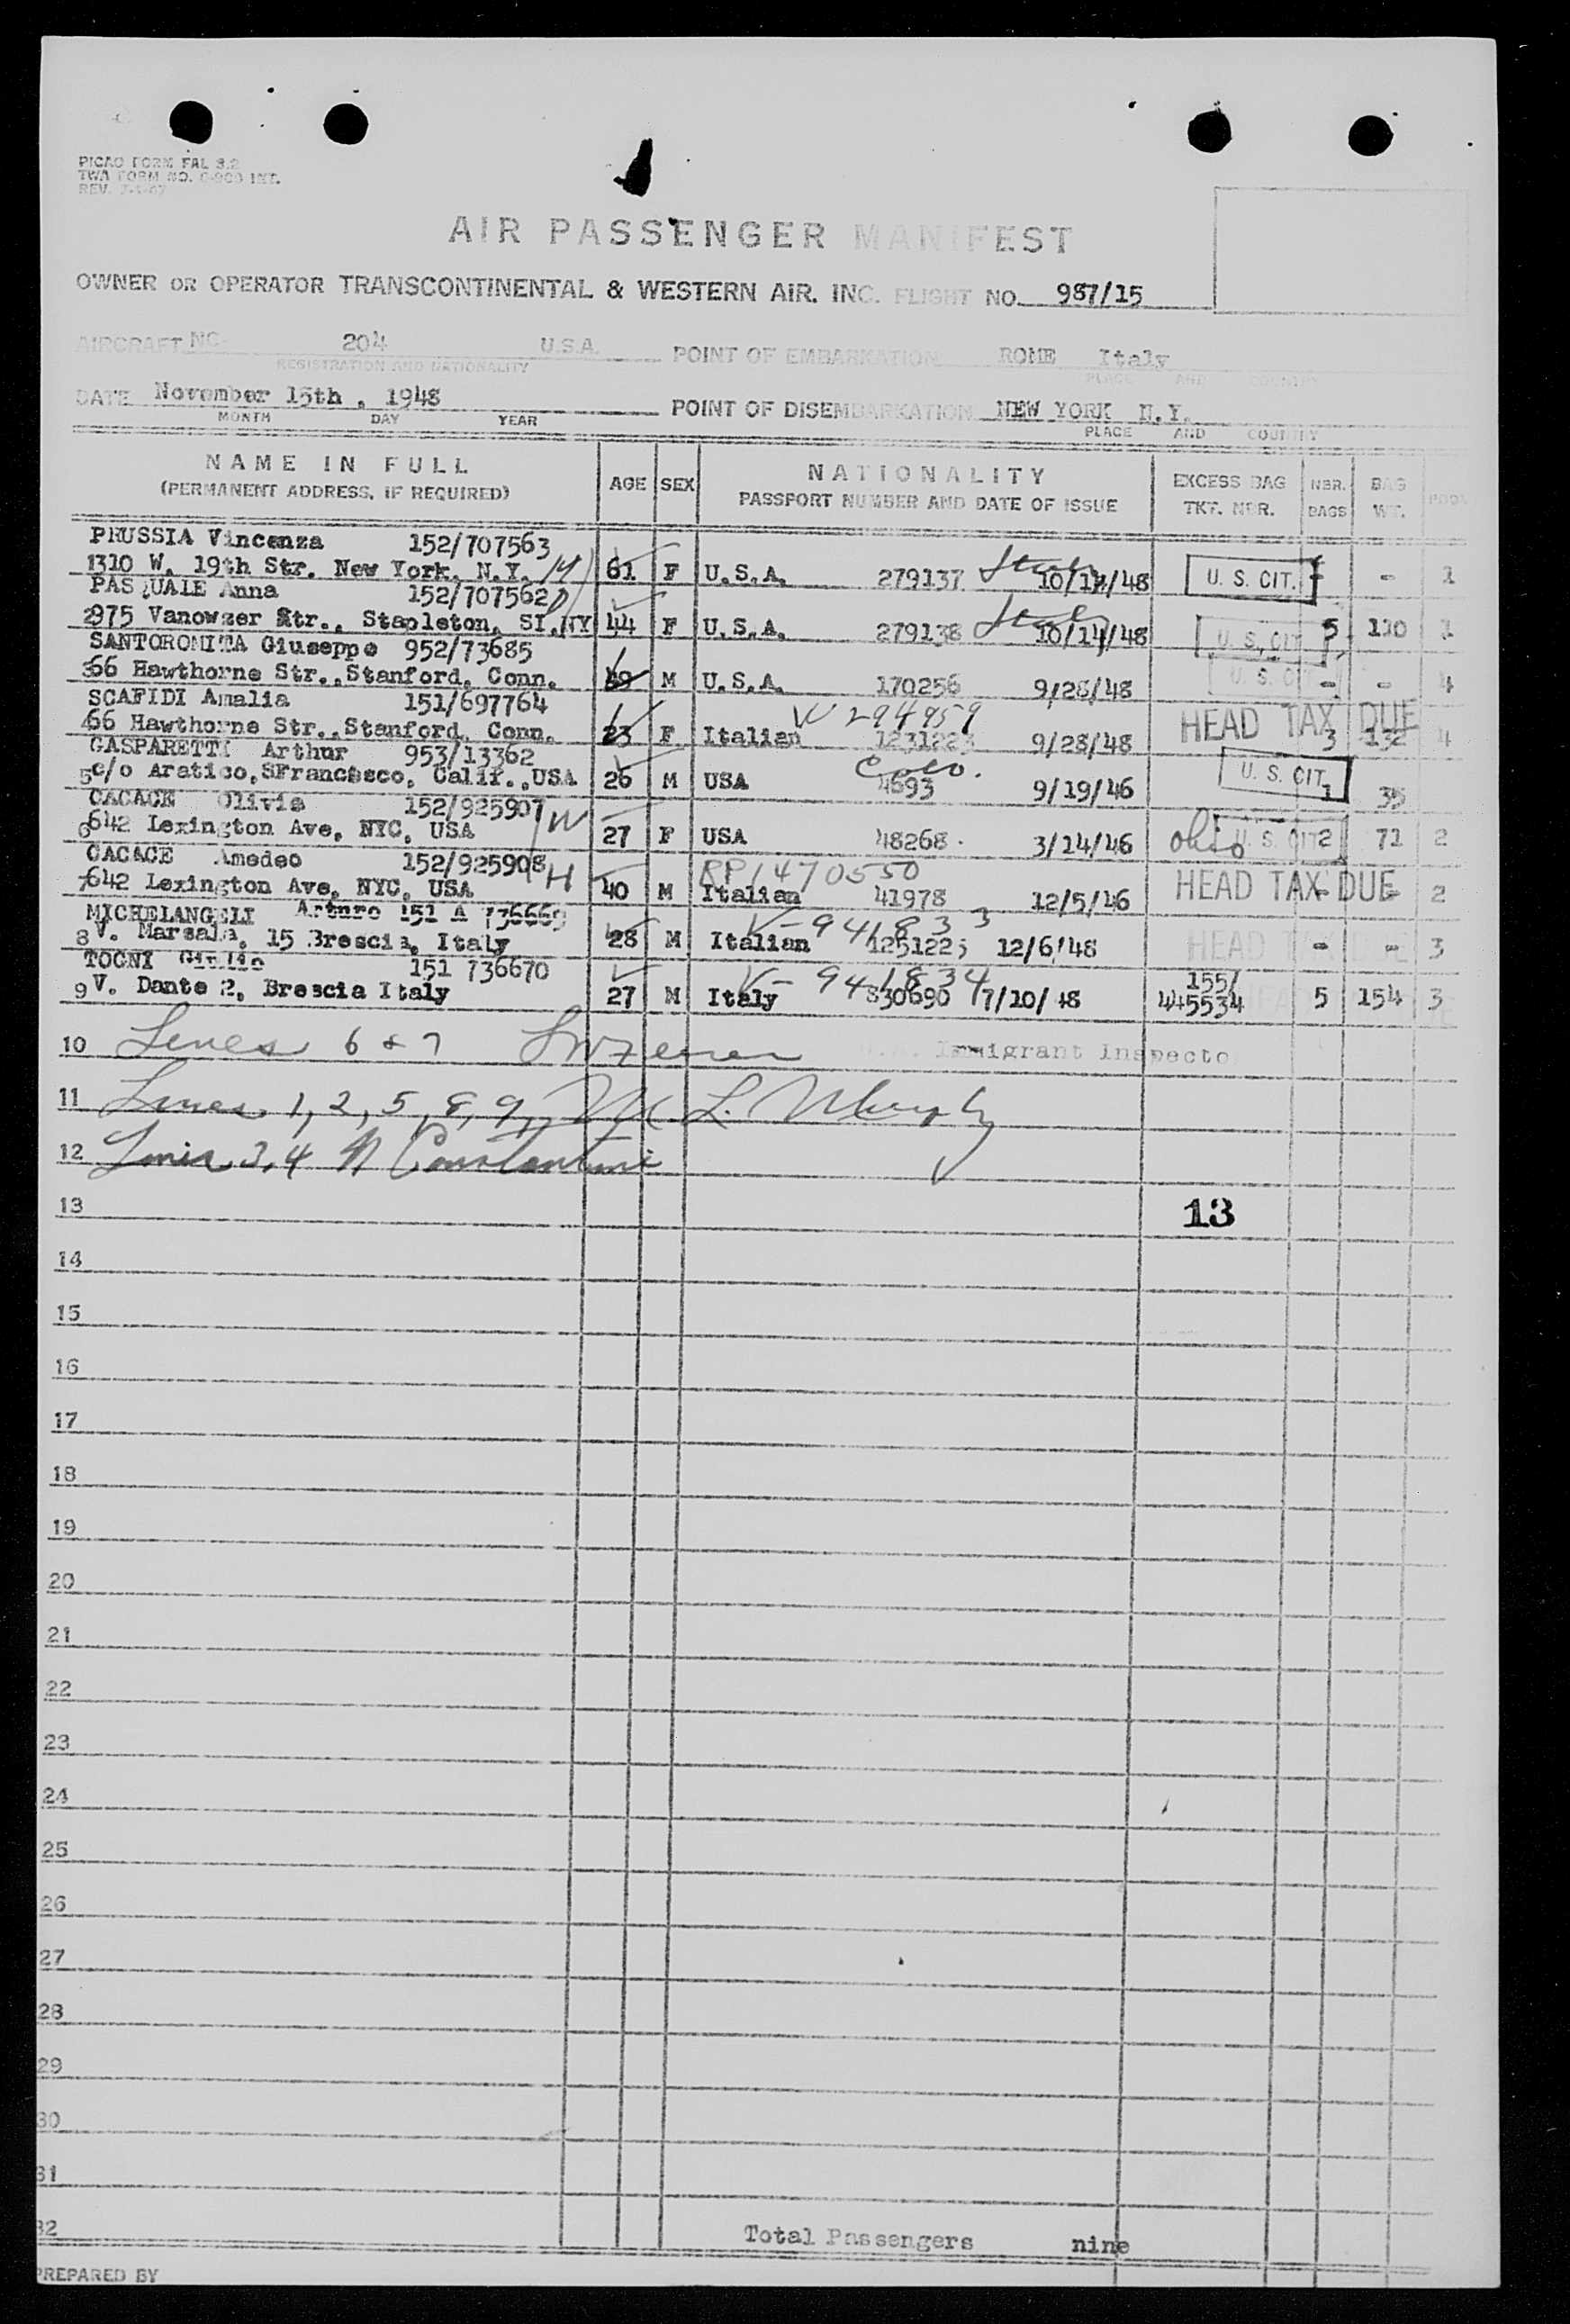 PICAO FORM FAL 3.2
TWA FORM NO. INT.
REV.
AIR PASSENGER MANIFEST
OWNER OR OPERATOR TRANSCONTINENTAL & WESTERN AIR. INC. FLIGHT NO. 987/15
AIRCRAFT NC- 204 U.S.A. POINT OF EMBARKATION ROME Italy
REGISTRATION AND NATIONALITY PLACE AND COUNTRY
DATE November 15th , 1948 POINT OF DISEMBARKATION NEW YORK N.Y.
MONTH DAY YEAR PLACE AND COUNTRY
NAME IN FULL AGE SEX NATIONALITY EXCESS BAG NBR. BAG
(PERMANENT ADDRESS, IF REQUIRED) PASSPORT NUMBER AND DATE OF ISSUE TKT. NBR. BAGS WT.
PRUSSIA Vincenza 152/707563
1310 W. 19th Str. New York, N.Y. M 61 F U.S.A. 279137 10/14/48 U. S. CIT. - 1
PASQUALE Anna 152/707562 D
2975 Vanowzer Str., Stapleton, SI.NY 44 F U.S.A. 279138 10/14/48 U. S. CIT 5 110 1
SANTOROMITA Giuseppe 952/73685
366 Hawthorne Str., Stanford, Conn. M U.S.A. 170256 9/28/48 U. S. C - - 4
SCAFIDI Amalia 151/697764 V 294959
466 Hawthorne Str., Stanford, Conn. 23 F Italian 1231223 9/28/48 HEAD TAX DUE 3 132 4
GASPARETTI Arthur 953/13362 Colo.
5c/o Aratico, SFrancesco, Calif., USA 26 M USA 4693 9/19/46 U. S. CIT. 1 35
CACACE Olivia 152/925907 W
6642 Lexington Ave, NYC, USA 27 F USA 48268 3/14/46 Ohio U. S. CIT 2 71 2
CACACE Amedeo 152/925908 H RP 1470550
7642 Lexington Ave, NYC, USA 40 M Italian 41978 12/5/46 HEAD TAX DUE 2
MICHELANGELI Arturo 151 A 736669 V-941833
8V. Marsala, 15 Brescia, Italy 28 M Italian 1251223 12/6/48 HEAD - - 3
TOGNI Giulio 151 736670 V-941834 155/
9V. Dante 2, Brescia Italy 27 M Italy 830690 7/10/48 445534 5 154 3
10 Lines 6 & 7 Immigrant Inspecto
11 Lines 1, 2, 5, 8, 9, L. Murphy
12 Lines 3, 4 N Constantini
13 13
14
15
16
17
18
19
20
21
22
23
24
25
26
27
28
29
30
31
32 Total Passengers nine
PREPARED BY